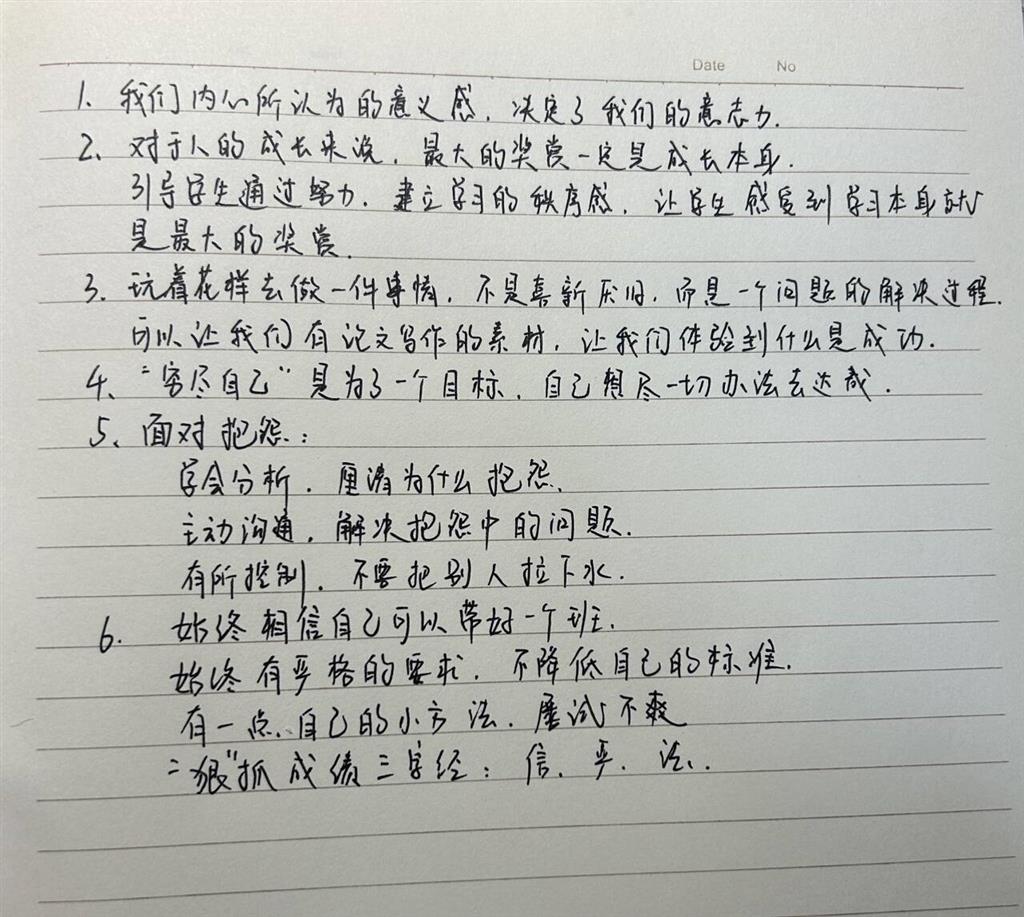 Date No
1. 我们内心所认为的意义感，决定了我们的意志力.
2、对于人的成长来说，最大的奖赏一定是成长本身.
引导学生通过努力，建立学习的秩序感，让学生感觉到学习本身就
是最大的奖赏.
3、玩着花样去做一件事情，不是喜新厌旧，而是一个问题的解决过程.
可以让我们有论文写作的素材，让我们体验到什么是成功.
4、"穷尽自己"是为了一个目标，自己想尽一切办法去达成.
5、面对抱怨：
学会分析，厘清为什么抱怨.
主动沟通，解决抱怨中的问题.
有所控制，不要把别人拉下水.
6. 始终相信自己可以带好一个班.
始终有严格的要求，不降低自己的标准.
有一点自己的小方法，屡试不爽
"狠"抓成绩三字经：信、严、法.